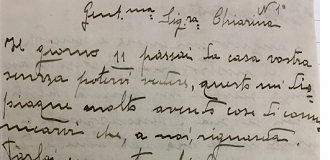 N 1°
Gent.ma Sig.ra Chiarina
Il giorno 11 passai la casa vostra
senza potervi vedere, questo mi dis
piaque molto avento cose di comu
nicarvi che, a noi, riguarda.